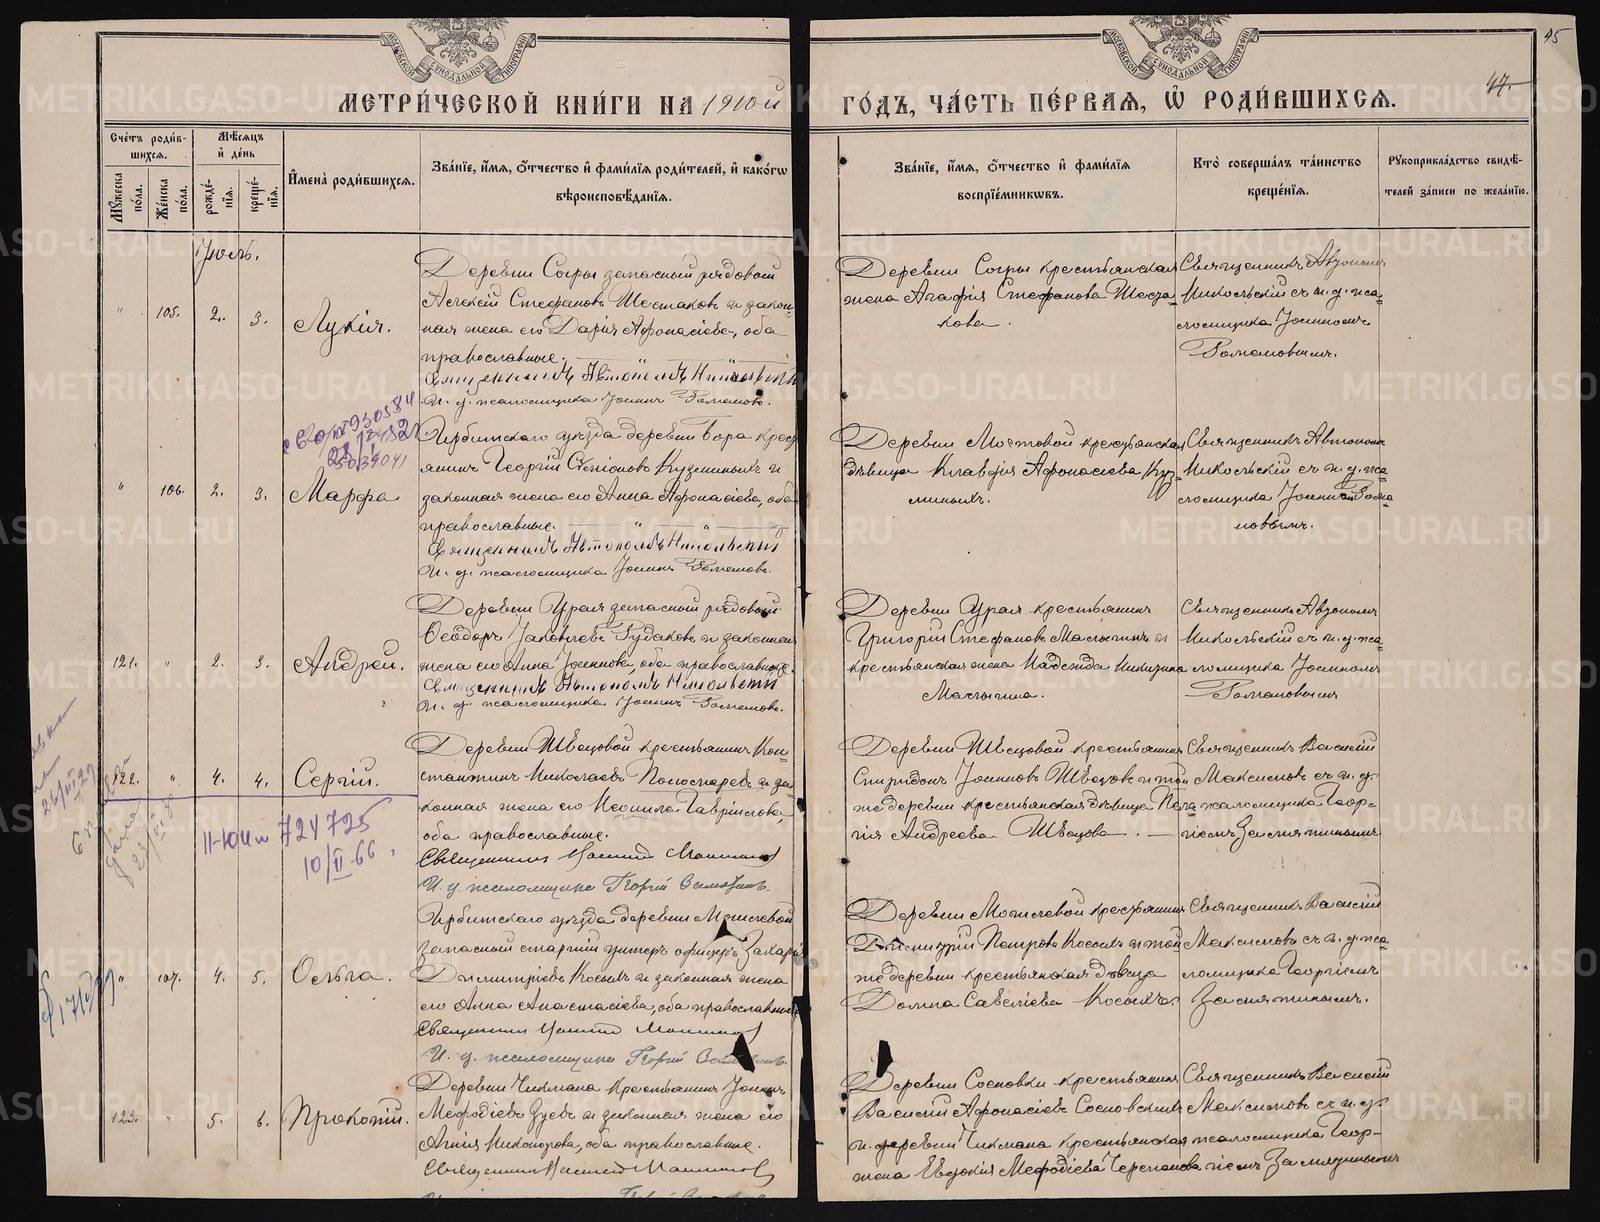 МЕТРИ́ЧЕСКОЙ КНИ́ГИ НА 1910й
ГО́ДЪ, ЧА́СТЬ ПЕ́РВАЯ, Ѡ РОДИ́ВШИХСЯ.
45
47.
Сче́тъ роди́в-
шихся.
Му́жеска по́ла.
Же́нска по́ла.
Мѣ́сяцъ
и҆ де́нь
рожде́-
нїя.
креще́-
нїя.
И҆мена̀ роди́вшихся.
Зва́нїе, и҆́мя, о҆́тчество и҆ фами́лїя роди́телей, и҆ како́гѡ
вѣроисповѣ́данїя.
Зва́нїе, и҆́мя, о҆́тчество и҆ фами́лїя
воспрїе́мникѡвъ.
Кто̀ соверша́лъ та́инство
креще́нїя.
Рꙋкоприкла́дство свидѣ́-
телей за́писи по жела́нїю.
Іюль.
" 105. 2. 3. Лукія.
Деревни Согры запасный рядовой
Алексій Стефановъ Шестаковъ и закон-
ная жена его Дарія Афонасіева, оба
православные.
Священникъ Автономъ Никольскій
И. д. псаломщика Іоаннъ Романовъ.
Деревни Согры крестьянская
жена Агафія Стефанова Шеста-
кова.
Священникъ Автономъ
Никольскій съ и. д. пса-
ломщика Іоанномъ
Романовымъ.
" 106. 2. 3. Марфа
Ирбитскаго уѣзда деревни Бора крест
янинъ Георгій Кузминыхъ и
законная жена его Анна Афонасіева, оба
православные.
Священникъ Автономъ Никольскій
И. д. псаломщика Іоаннъ Романовъ.
Деревни Мостовой крестьянская
дѣвица Клавдія Афонасіева Куз-
миныхъ.
Священникъ Автономъ
Никольскій съ и. д. пса-
ломщика Іоанномъ Рома-
новымъ.
121. " 2. 3. Андрей.
Деревни Урала запасный рядовой
Ѳеодоръ Іаковлевъ Рудаковъ и законная
жена его Анна Іоаннова, оба православные.
Священникъ Автономъ Никольскій
И. д. псаломщика Іоаннъ Романовъ.
Деревни Урала крестьянинъ
Григорій Стефановъ Малыгинъ и
крестьянская жена Надежда Никитина
Малыгина.
Священникъ Автономъ
Никольскій съ и. д. пса-
ломщика Іоанномъ
Романовымъ
122. " 4. 4. Сергій.
Деревни Швецовой крестьянинъ Кон-
стантинъ Николаевъ Пономаревъ и за-
конная жена его Неонила Гавріилова,
оба православные.
Священникъ Василій Максимовъ
И. д. псаломщика Георгій Замятинъ.
Деревни Швецовой крестьянинъ
Спиридонъ Іоанновъ Швецовъ и той
же деревни крестьянская дѣвица Пела-
гія Андреева Швецова.
Священникъ Василій
Максимовъ съ и. д.
псаломщика Геор-
гіемъ Замятинымъ.
II-ЮИ № 724725
10/II-66.
" 107. 4. 5. Ольга.
Ирбитскаго уѣзда деревни Мочелевой
запасный старшій унтеръ офицеръ Захарій
Димитріевъ Косыхъ и законная жена
его Анна Анастасіева, оба православные
Священникъ Василій Максимовъ
И. д. псаломщика Георгій Замятинъ.
Деревни Мочелевой крестьянинъ
Димитрій Петровъ Косыхъ и той
же деревни крестьянская дѣвица
Домна Савеліева Косыхъ.
Священникъ Василій
Максимовъ съ и. д. пса-
ломщика Георгіемъ
Замятинымъ.
123. " 5. 6. Прокопій.
Деревни Чикмана крестьянинъ Іоаннъ
Меѳодіевъ Зуевъ и законная жена его
Агнія Никонорова, оба православные.
Священникъ Василій Максимовъ
Деревни Сосновки крестьянинъ
Василій Афонасіевъ Сосновскихъ
и деревни Чикмана крестьянская
жена Евдокія Меѳодіева Черепанова
Священникъ Василій
Максимовъ съ и. д.
псаломщика Геор-
гіемъ Замятинымъ
METRIKI.GASO-URAL.RU